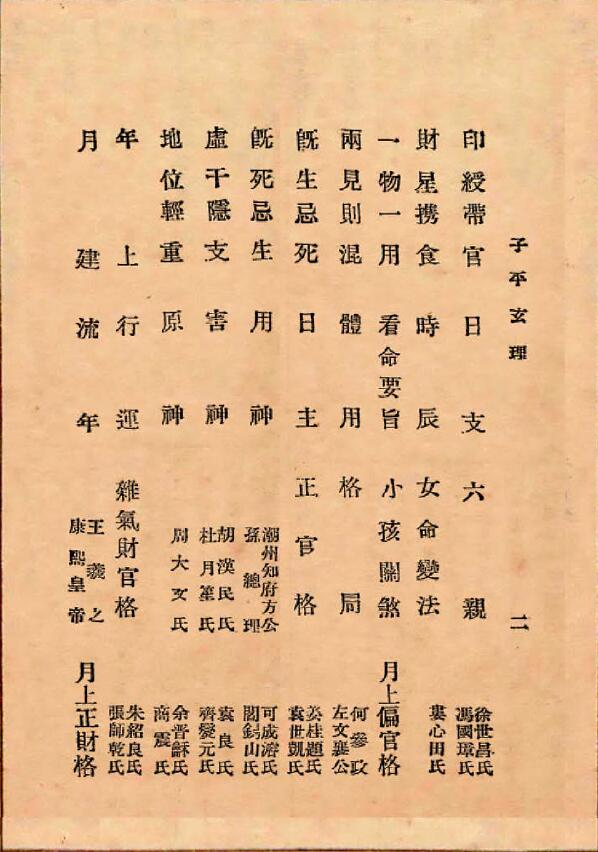 子平玄理 二
印綬帶官 日支 六親 徐世昌氏
馮國璋氏
財星携食 時辰 女命變法 婁心田氏
一物一用 看命要旨 小孩關煞 月上偏官格
兩見則混 體用 格局 何參政
左文襄公
旣生忌死 日主 正官格 姜桂題氏
袁世凱氏
旣死忌生 用神 潮州知府方公 可成溶氏
孫總理 閻錫山氏
虛干隱支 害神 胡漢民氏 袁良氏
杜月笙氏 齊燮元氏
地位輕重 原神 周大文氏 余晋龢氏
商震氏
年上行運 雜氣財官格 朱紹良氏
張師乾氏
月建流年 王羲之 月上正財格
康熙皇帝